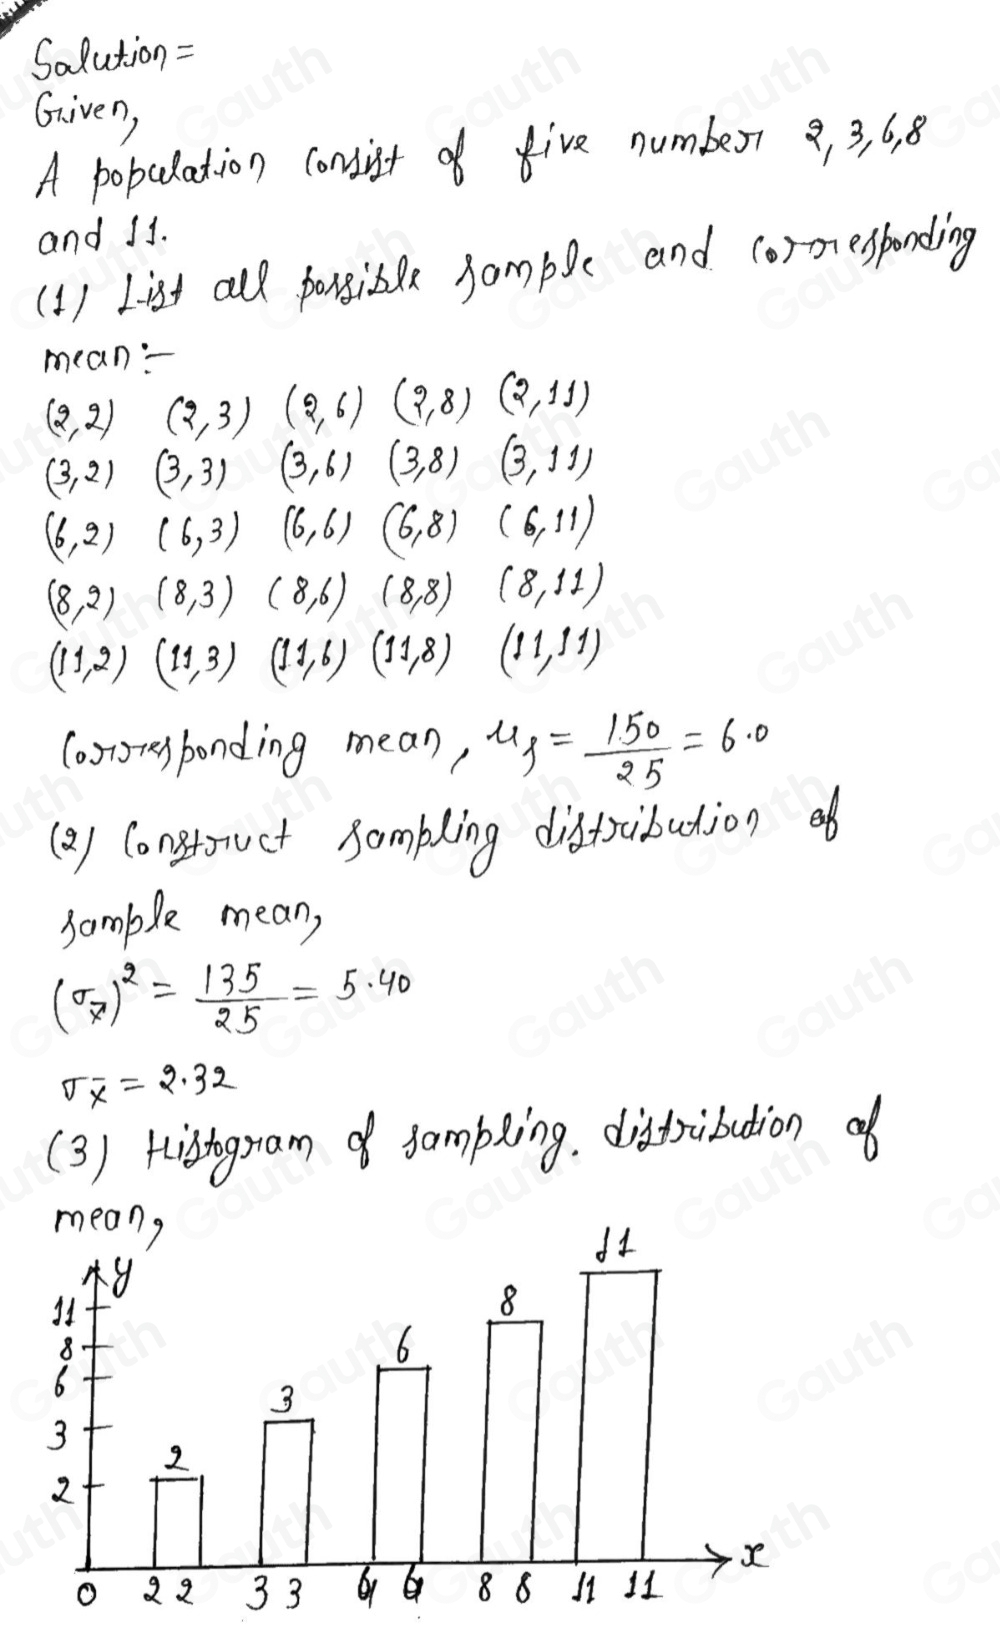 Solution =
Given,
A population consist of five number 2, 3, 6, 8
and 11.
(1) List all possible sample and corresponding
mean :-
(2,2) (2,3) (2,6) (2,8) (2,11)
(3,2) (3,3) (3,6) (3,8) (3,11)
(6,2) (6,3) (6,6) (6,8) (6,11)
(8,2) (8,3) (8,6) (8,8) (8,11)
(11,2) (11,3) (11,6) (11,8) (11,11)
Corresponding mean, μs = 150/25 = 6.0
(2) Construct sampling distribution of
sample mean,
(σx̄)² = 135/25 = 5.40
σx̄ = 2.32
(3) Histogram of sampling. distribution of
mean,
y
11
8
6
3
2
2 3 6 8 11
0 2 2 3 3 6 6 8 8 11 11 x